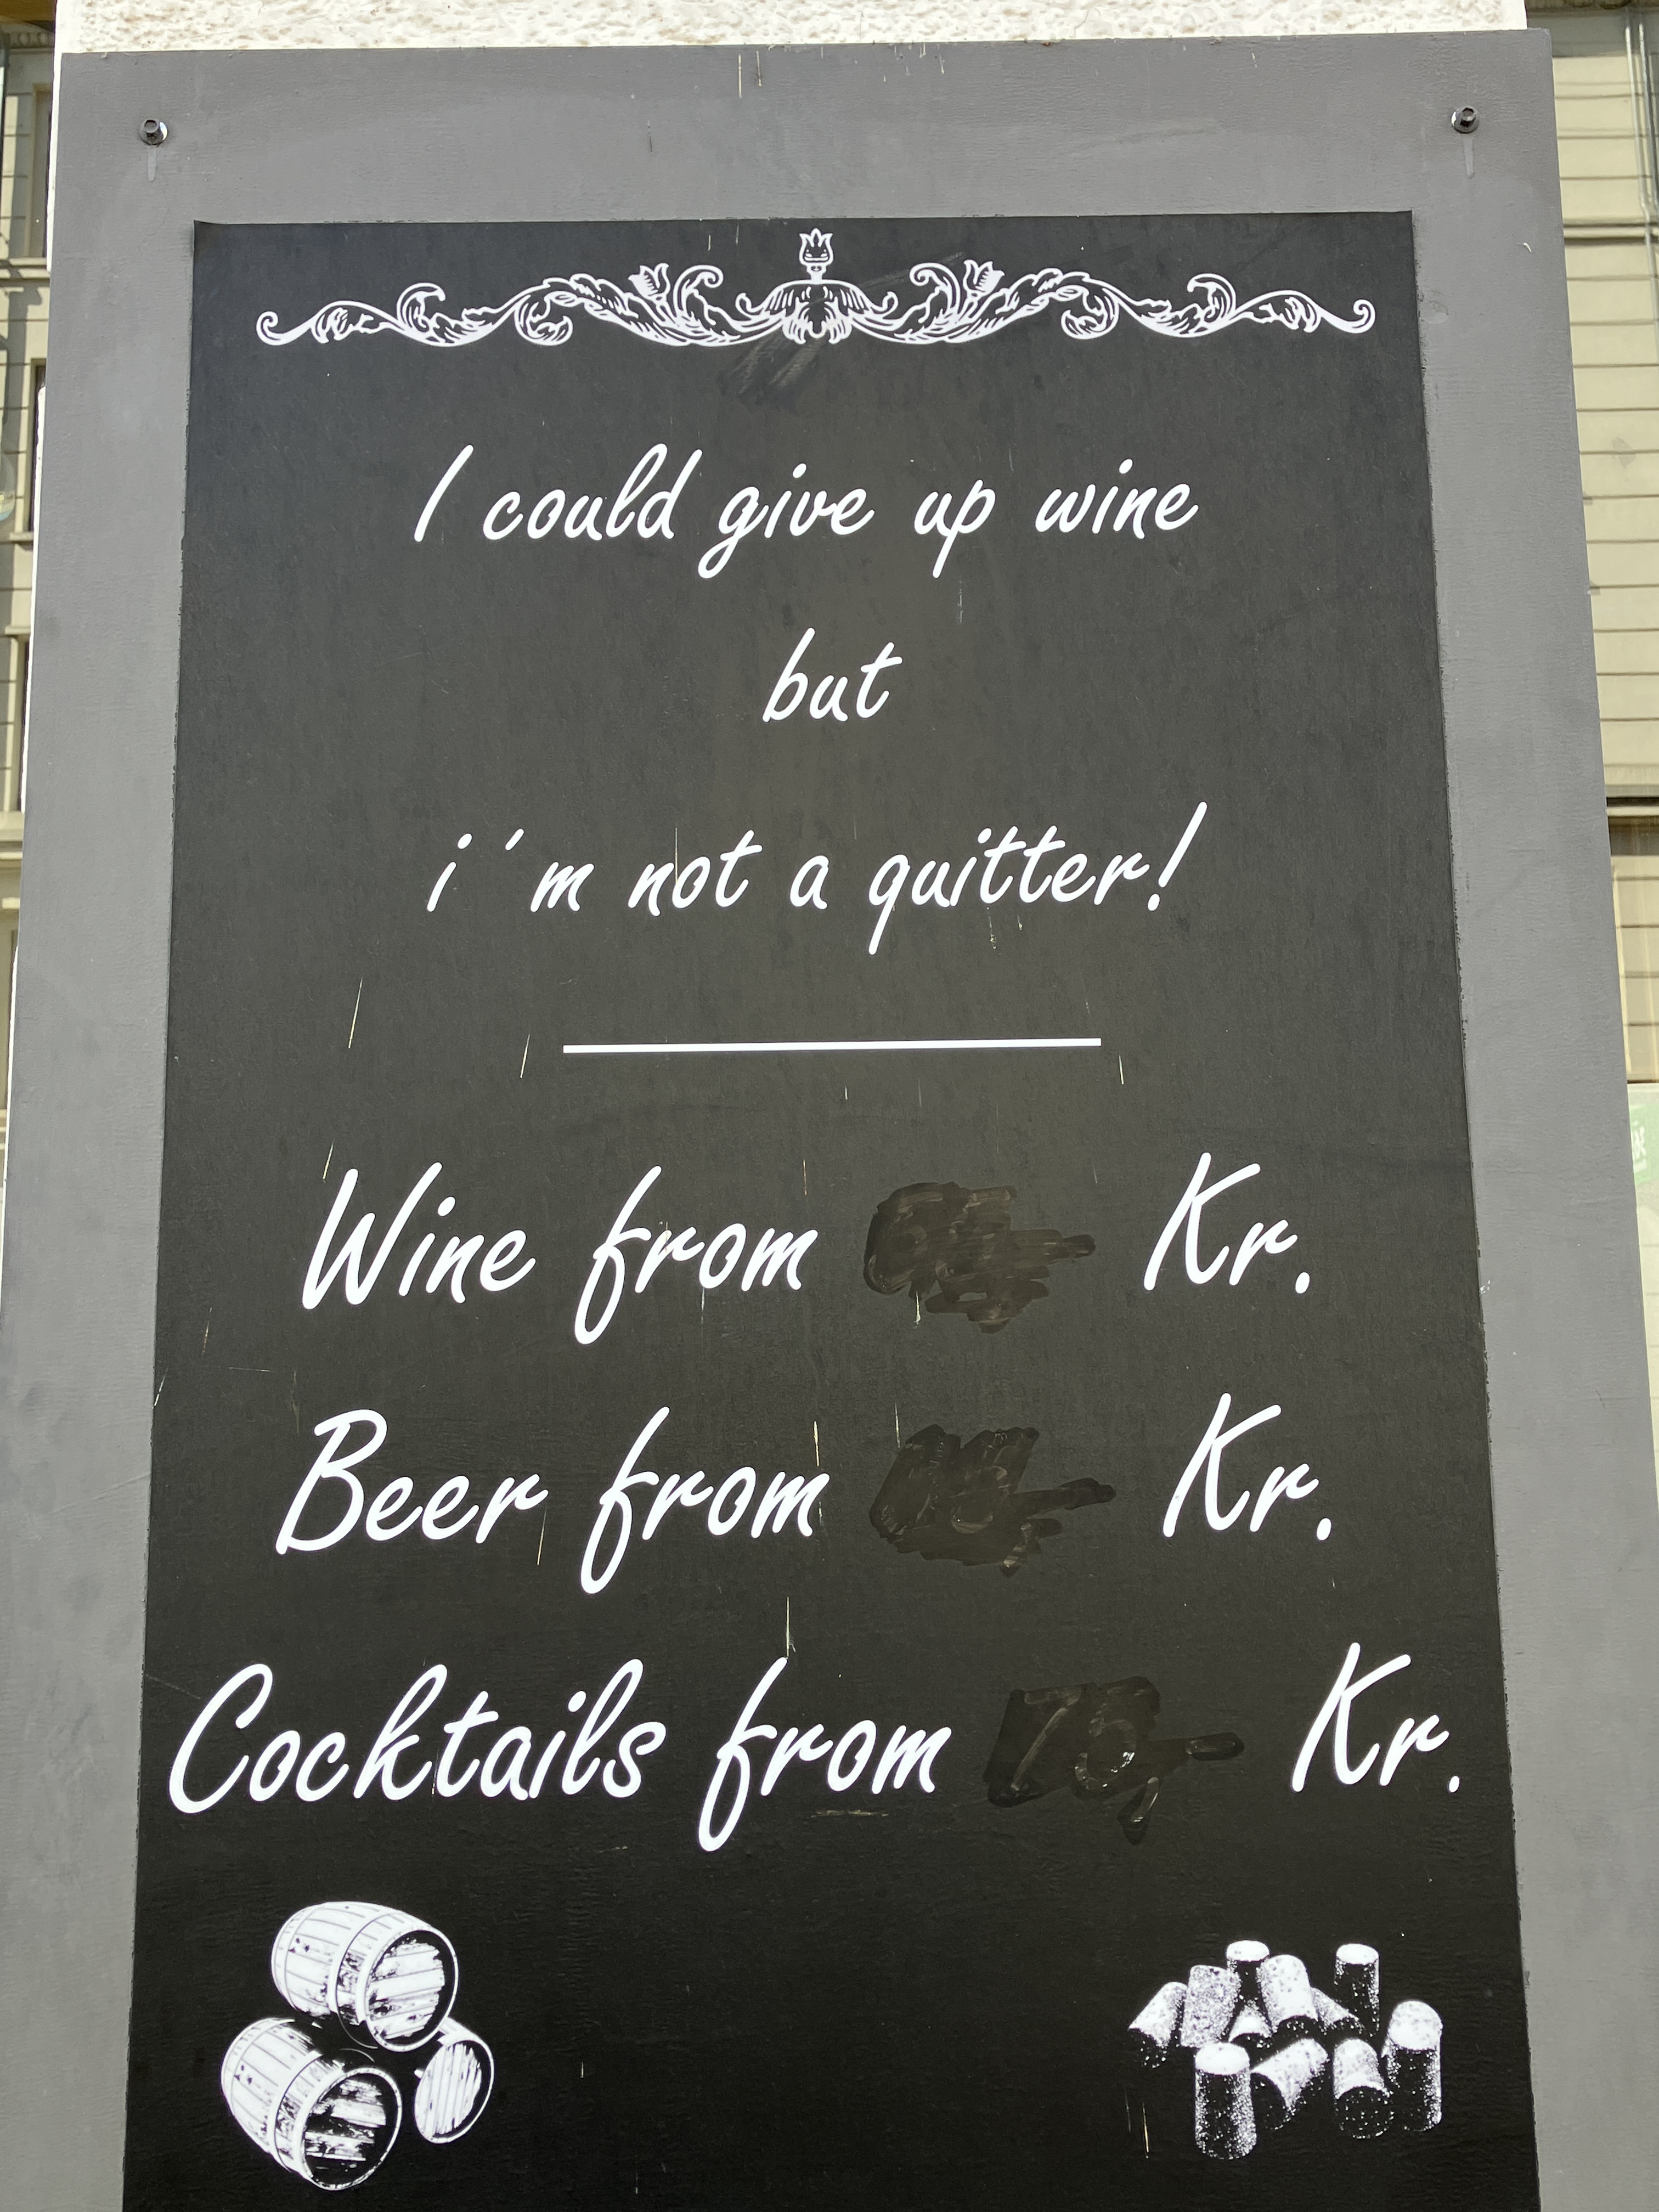 I could give up wine
but
i´m not a quitter!
Wine from Kr.
Beer from Kr.
Cocktails from Kr.